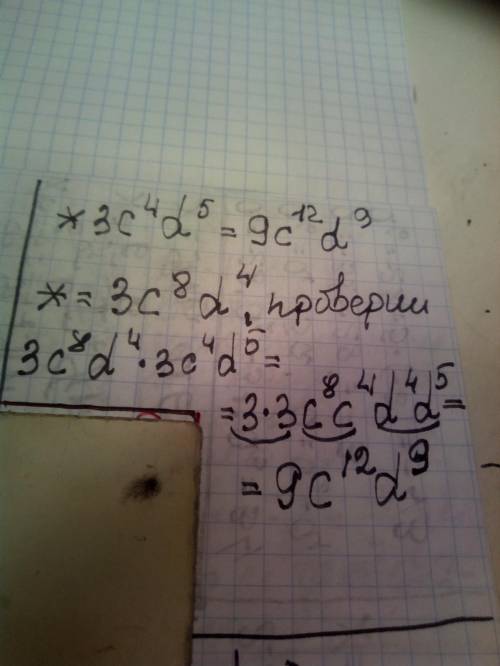 * 3c⁴d⁵ = 9c¹²d⁹
* = 3c⁸d⁴, проверим
3c⁸d⁴·3c⁴d⁵ =
= 3·3c⁸c⁴d⁴d⁵ =
= 9c¹²d⁹